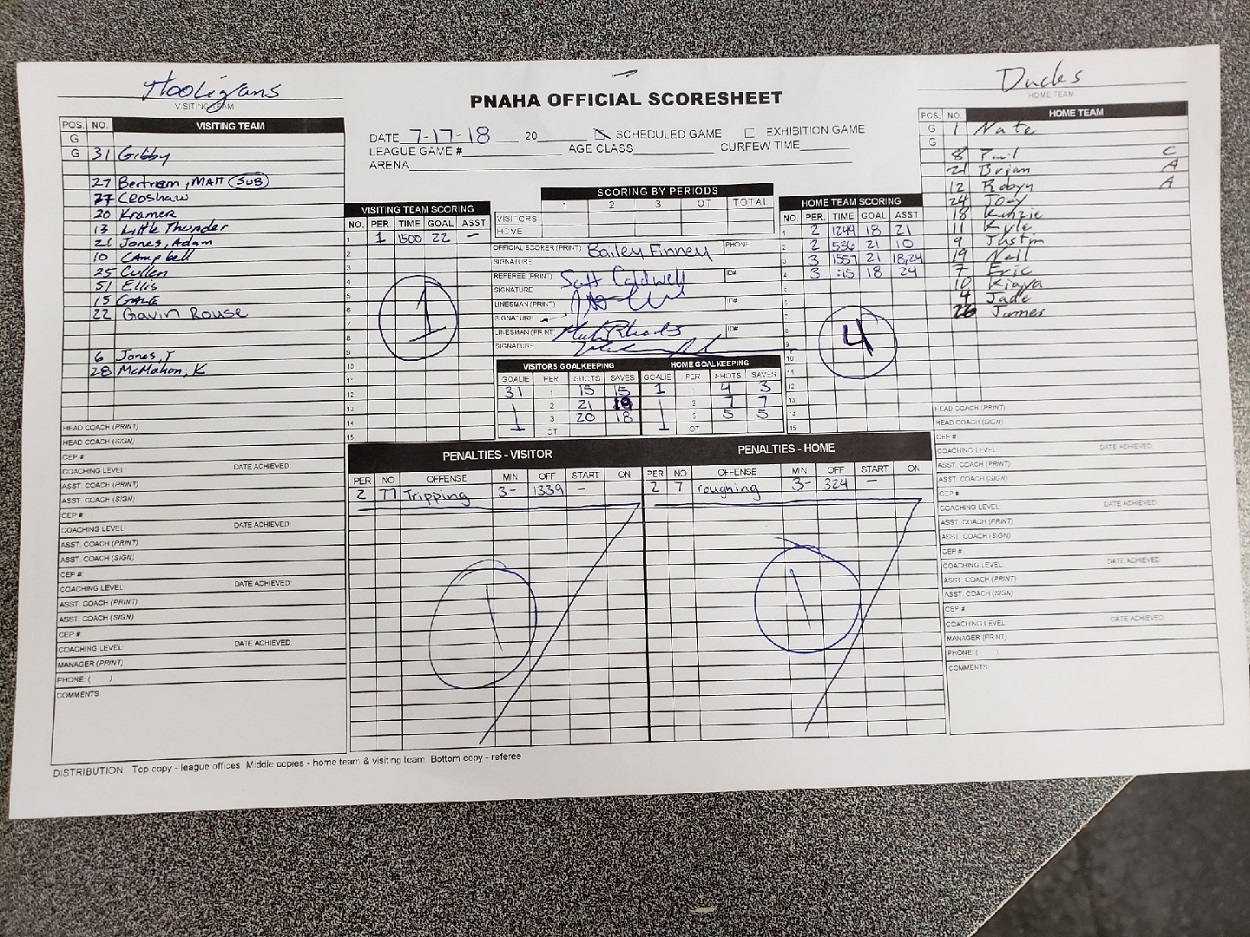 Hooligans
VISITING TEAM
PNAHA OFFICIAL SCORESHEET
Ducks
HOME TEAM
DATE 7-17-18 20 SCHEDULED GAME EXHIBITION GAME
LEAGUE GAME # AGE CLASS CURFEW TIME
ARENA
POS. NO. VISITING TEAM
G
G 31 Gibby
27 Bertram, MATT (SUB)
77 Croshaw
20 Kramer
13 Little Thunder
21 Jones, Adam
10 Campbell
25 Cullen
51 Ellis
15 GALE
22 Gavin Rouse
6 Jones, T
28 McMahon, K
HEAD COACH (PRINT)
HEAD COACH (SIGN)
CEP #
COACHING LEVEL DATE ACHIEVED
ASST. COACH (PRINT)
ASST. COACH (SIGN)
CEP #
COACHING LEVEL DATE ACHIEVED
ASST. COACH (PRINT)
ASST. COACH (SIGN)
CEP #
COACHING LEVEL DATE ACHIEVED
ASST. COACH (PRINT)
ASST. COACH (SIGN)
CEP #
COACHING LEVEL DATE ACHIEVED
MANAGER (PRINT)
PHONE ( )
COMMENTS
VISITING TEAM SCORING
NO. PER TIME GOAL ASST
1 1 1500 22 -
1
SCORING BY PERIODS
1 2 3 OT TOTAL
VISITORS
HOME
OFFICIAL SCORER (PRINT) Bailey Finney PHONE
SIGNATURE
REFEREE (PRINT) Scott Caldwell ID#
SIGNATURE
LINESMAN (PRINT) ID#
SIGNATURE
LINESMAN (PRINT) ID#
SIGNATURE
VISITORS GOALKEEPING HOME GOALKEEPING
GOALIE PER SHOTS SAVES GOALIE PER SHOTS SAVES
31 15 15 1 4 3
2 21 19 2 7 7
3 20 18 3 5 5
OT OT
HOME TEAM SCORING
NO. PER. TIME GOAL ASST
1 2 1249 18 21
2 2 536 21 10
3 3 1557 21 18,24
4 3 :15 18 24
4
POS. NO. HOME TEAM
G 1 Nate
G
8 Paul C
21 Brian A
12 Robyn A
24 Joey
18 Kenzie
11 Kyle
9 Justin
19 Neil
7 Eric
10 Kiana
4 Jade
26 James
HEAD COACH (PRINT)
HEAD COACH (SIGN)
CEP #
COACHING LEVEL DATE ACHIEVED
ASST. COACH (PRINT)
ASST. COACH (SIGN)
CEP #
COACHING LEVEL DATE ACHIEVED
ASST. COACH (PRINT)
ASST. COACH (SIGN)
CEP #
COACHING LEVEL DATE ACHIEVED
ASST. COACH (PRINT)
ASST. COACH (SIGN)
CEP #
COACHING LEVEL DATE ACHIEVED
MANAGER (PRINT)
PHONE ( )
COMMENTS
PENALTIES - VISITOR
PER NO OFFENSE MIN OFF START ON
2 77 Tripping 3- 1339 -
1
PENALTIES - HOME
PER NO OFFENSE MIN OFF START ON
2 7 roughing 3- 324 -
1
DISTRIBUTION Top copy - league offices Middle copies - home team & visiting team Bottom copy - referee